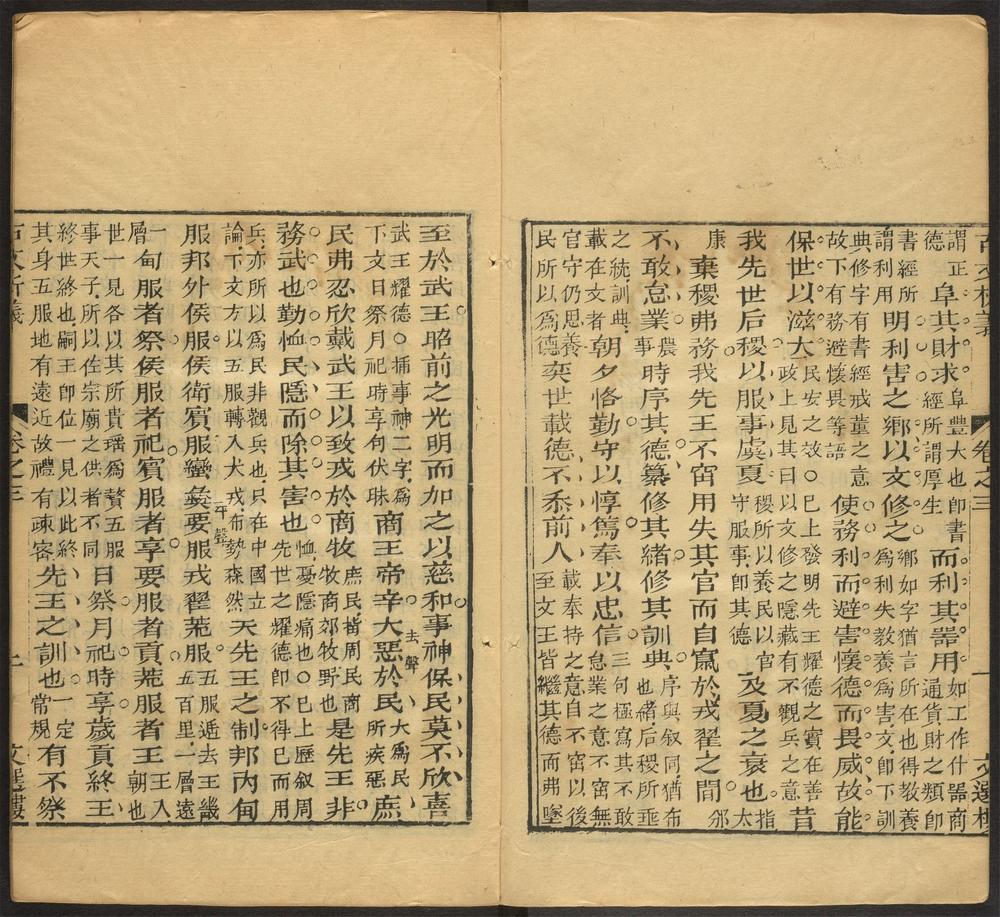 古文析義 卷之三 一 文選樓
謂正德 阜其財求 阜豐大也即書經所謂厚生 而利其器用 如工作什器商通貨財之類即
書經所謂利用 明利害之鄉以文修之 鄉如字猶言所在也得教養為利失教養為害文即下訓
典修字有書經戒董之意故下有務避懷畏等語 使務利而避害懷德而畏威故能
保世以滋大 民安之故○已上發明先王耀德之實在善政上見其曰以文修之隱藏有不觀兵之意 昔
我先世后稷以服事虞夏 稷所以養民以官守服事即其德 及夏之衰也 指太
康 棄稷弗務我先王不窋用失其官而自竄於戎翟之間 邠
不敢怠業 農事 時序其德纂修其緒修其訓典 序與叙同猶布也緒后稷所垂
之統訓典載在文者 朝夕恪勤守以惇篤奉以忠信 三句極寫其不敢怠業之意不窋無
官守仍思養民所以爲德 奕世載德不忝前人 載奉持之意自不窋以後至文王皆繼其德而弗墜
至於武王昭前之光明而加之以慈和事神保民莫不欣喜
武王耀德○插事神二字爲下文日祭月祀時享句伏脉 商王帝辛大惡 去聲 於民 大爲民所疾惡 庶
民弗忍欣戴武王以致戎於商牧 庶民皆周民商牧商郊牧野也 是先王非
務武也勤恤民隱而除其害也 恤憂隱痛也○已上歷叙周先世之耀德即不得已而用
兵亦所以爲民非觀兵也只在中國立論下文方以五服轉入犬戎布勢森然 夫先王之制邦內甸
服邦外侯服侯衛賓服蠻夷要 平聲 服戎翟荒服 五服遞去王畿五百里一層遠
一層 甸服者祭侯服者祀賓服者享要服者貢荒服者王 王入朝也
世一見各以其所貴瑤爲贄五服事天子所以佐宗廟之供者不同 日祭月祀時享歲貢終王
終世終也嗣王即位一見以此終其身五服地有遠近故禮有疎密 先王之訓也 一定常規 有不祭
古文析義 卷之三 一 文選樓